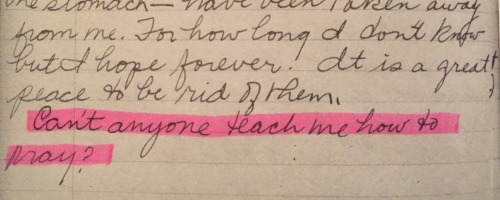 the stomach — have been taken away
from me. For how long I don't know
but I hope forever. It is a great
peace to be rid of them.
Can't anyone teach me how to
pray?